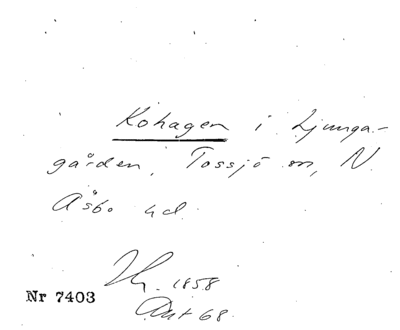 Kohagen i Ljunga-
gården, Tossjö sn, N.
Åsbo hd.
Nr 7403
1858
68